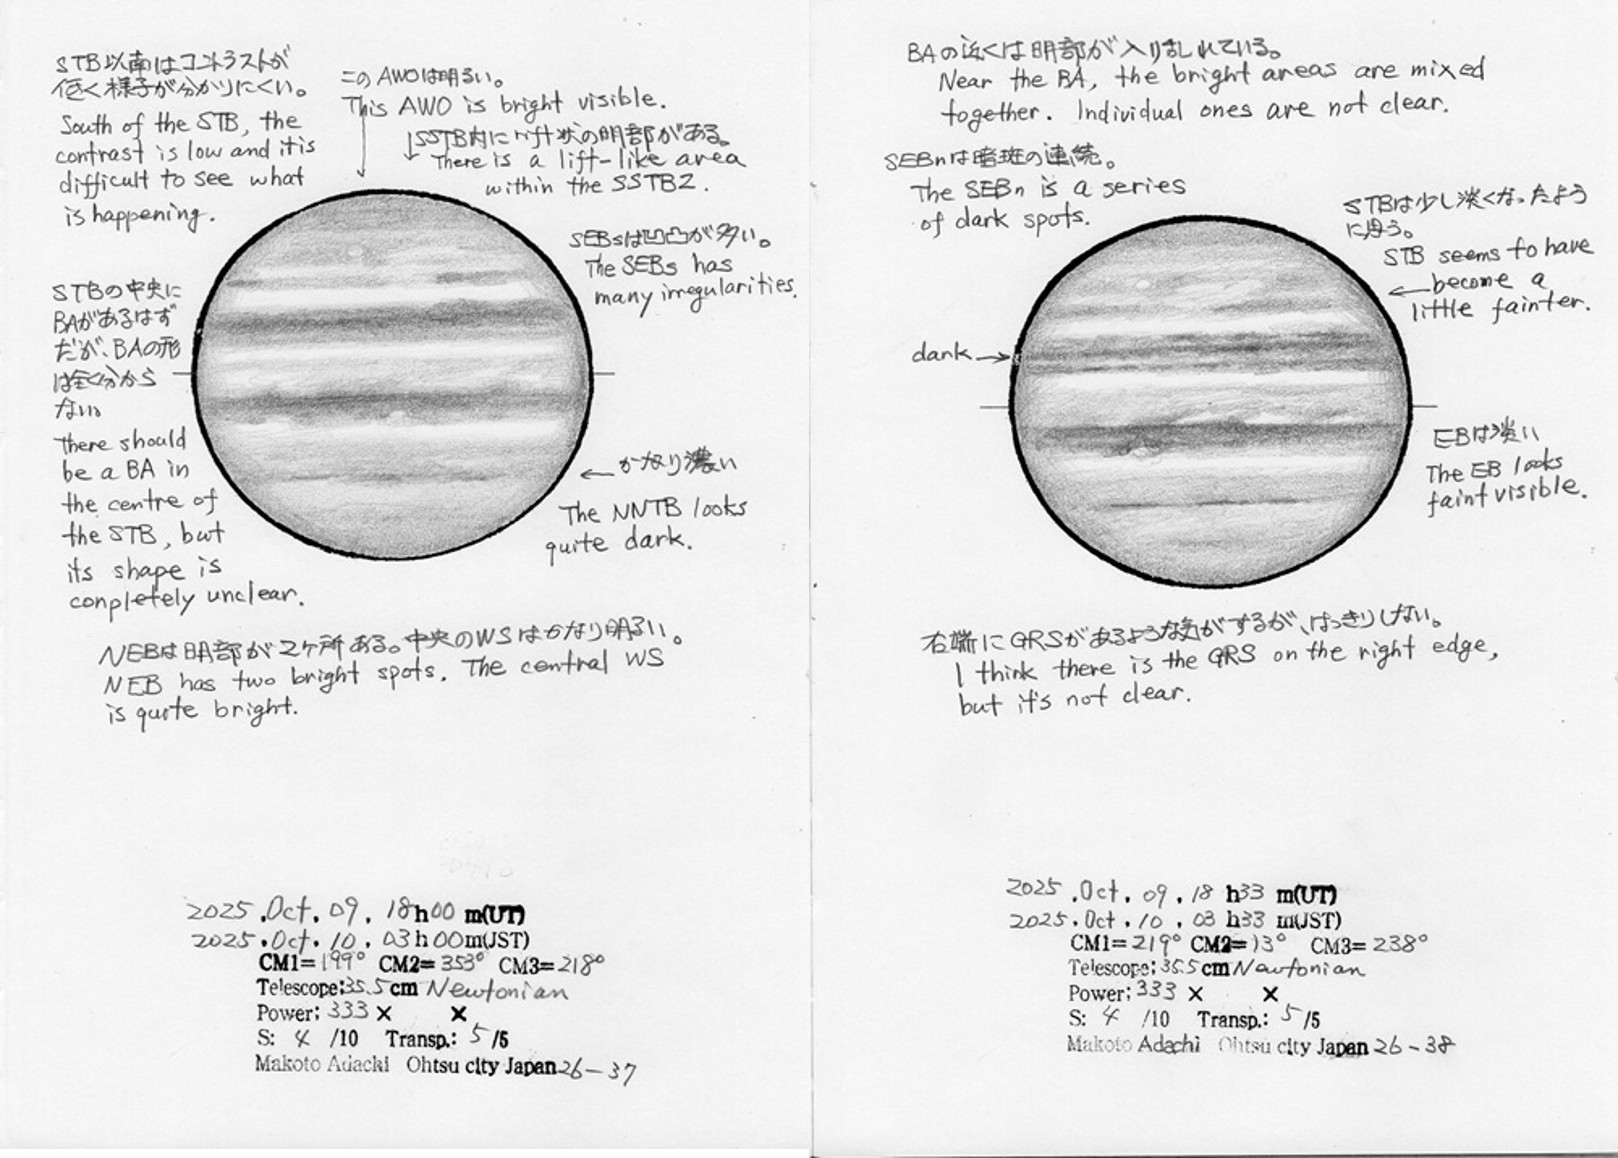 STB以南はコントラストが
低く様子が分かりにくい。
South of the STB, the
contrast is low and it is
difficult to see what
is happening.
このAWOは明るい。
This AWO is bright visible.
SSTB内に の明部がある。
There is a lift-like area
within the SSTBZ.
SEBsは凹凸が多い。
The SEBs has
many irregularities.
STBの中央に
BAがあるはず
だが、BAの形
は全く分から
ない。
There should
be a BA in
the centre of
the STB, but
its shape is
conpletely unclear.
← かなり濃い
The NNTB looks
quite dark.
NEBは明部が2ケ所ある。中央のWSはかなり明るい。
NEB has two bright spots. The central WS
is quite bright.
2025.Oct.09.18h00m(UT)
2025.Oct.10.03h00m(JST)
CM1=199° CM2=353° CM3=218°
Telescope:35.5cm Newtonian
Power; 333× ×
S: 4 /10 Transp.: 5/5
Makoto Adachi Ohtsu city Japan 26-37
BAの近くは明部が入り乱れている。
Near the BA, the bright areas are mixed
together. Individual ones are not clear.
SEBnは暗斑の連続。
The SEBn is a series
of dark spots.
STBは少し淡くなったよう
に思う。
STB seems to have
become a
little fainter.
dark →
EBは淡い
The EB looks
faint visible.
右端にGRSがあるような気がするが、はっきりしない。
I think there is the GRS on the right edge,
but it's not clear.
2025.Oct.09.18h33m(UT)
2025.Oct.10.03h33m(JST)
CM1=219° CM2=13° CM3=238°
Telescope; 35.5cm Newtonian
Power; 333× ×
S: 4 /10 Transp.: 5/5
Makoto Adachi Ohtsu city Japan 26-38